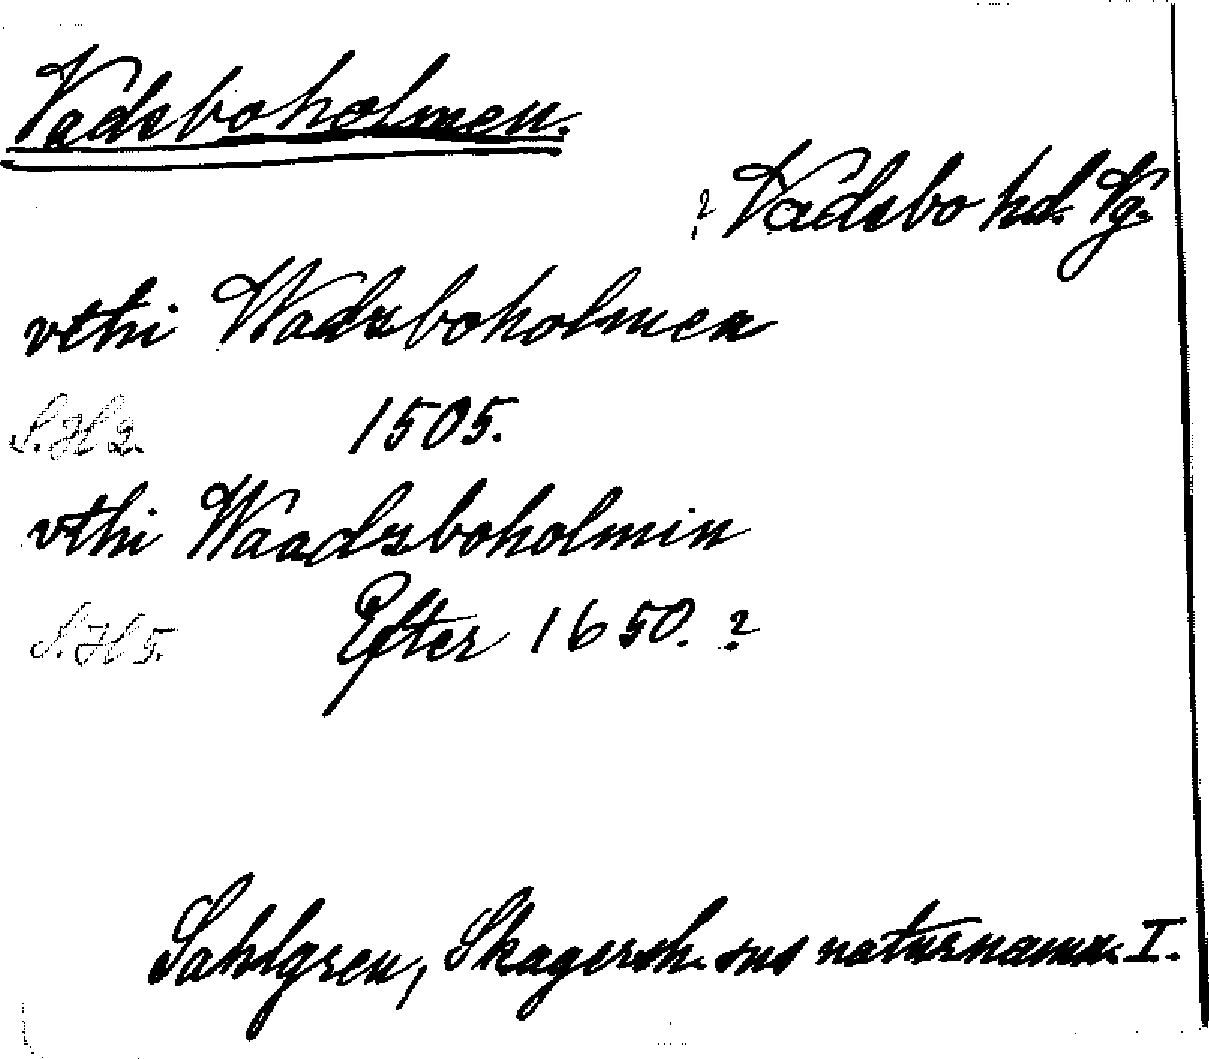 Vadsboholmen.
? Vadsbo hd. Vg.
vthi Wadzboholmen
S.H 2. 1505.
vthi Waadzboholmin
S.H 5. Efter 1650. ?
Sahlgren, Skagersh. sns naturnamn. I.